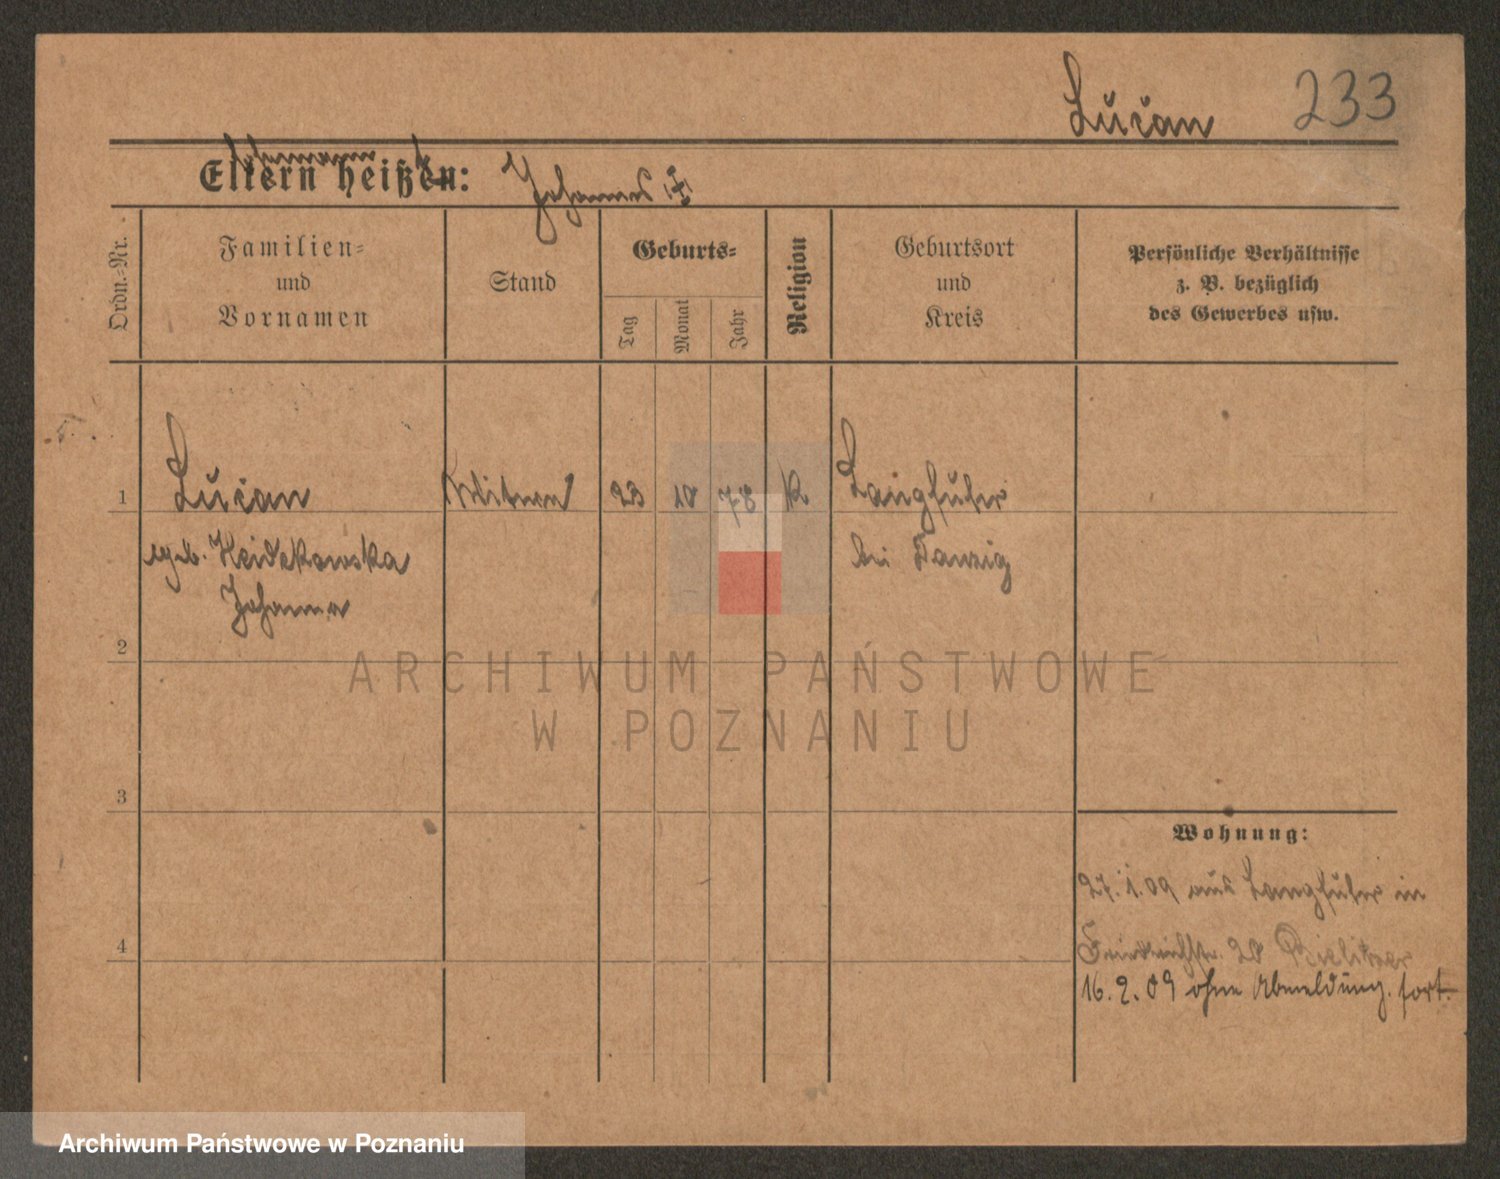 Lucian 233
Ehemann
Eltern heißen: Johannes
Ordn.-Nr.
Familien-
und
Vornamen
Stand
Geburts-
Tag
Monat
Jahr
Religion
Geburtsort
und
Kreis
Persönliche Verhältnisse
z. B. bezüglich
des Gewerbes usw.
1 Lucian 23 10 78 k Langfuhr
geb. Heidekowska bei Danzig
Johanna
2
ARCHIWUM PAŃSTWOWE
W POZNANIU
3
Wohnung:
27.1.09 aus Langfuhr in
4 Friedrichstr. 20
16.2.09 ohne Abmeldung fort.
Archiwum Państwowe w Poznaniu